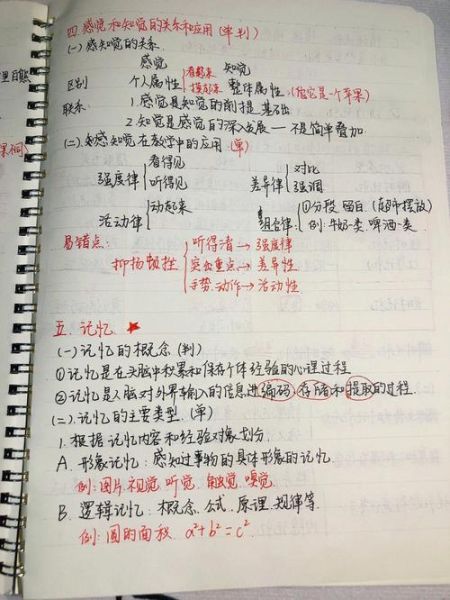 四.感觉和知觉的关系和应用(单判)
(一)感知觉的关系.
感觉 知觉
区别 个人属性 看起来 摸起来 整体属性(但它是一个苹果)
联系: 1.感觉是知觉的前提.基础
2.知觉是感觉的深入发展—不是简单叠加
(二).知感知觉在教学中的应用(单)
强度律 看得见 听得见 差异律 对比 强调
活动律 动起来 组合律: ①分段.留白(超市摆放) 例:牛奶一类.啤酒一类
易错点:
抑扬顿挫 听得清→强度律
突出重点→差异性
手势.动作→活动性
五.记忆 ★
(一)记忆的概念(判)
①记忆是在头脑中积累和保存个体经验的心理过程
②记忆是人脑对外界输入的信息进编码、存储和提取的过程.
(二).记忆的主要类型.(单)
1.根据记忆内容和经验对象划分.
A.形象记忆:感知过事物的具体形象的记忆
例:图片.视觉.听觉.触觉.嗅觉
B.逻辑记忆:概念.公式.原理.规律等.
例:圆的面积 a²+b²=c²